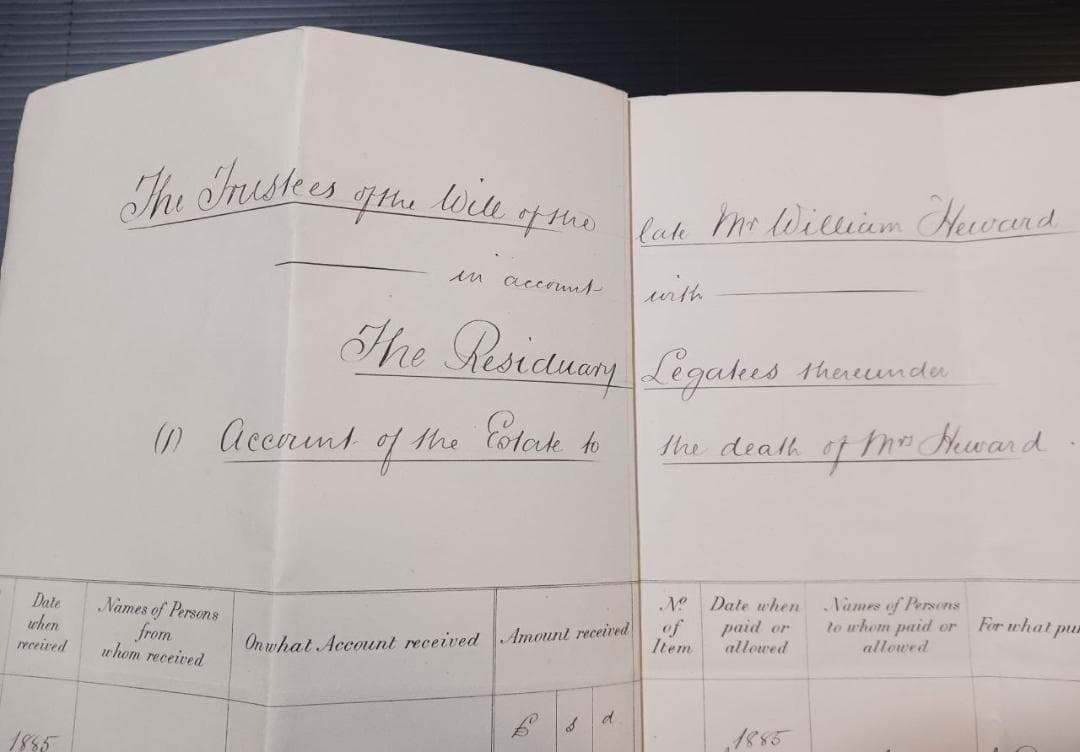 The Trustees of the Will of the late Mr William Heward
in account with
The Residuary Legatees thereunder
(1) Account of the Estate to the death of Mrs Heward.
Date when received
Names of Persons from whom received
On what Account received
Amount received
No of Item
Date when paid or allowed
Names of Persons to whom paid or allowed
For what pur
£ s d
1885
1885